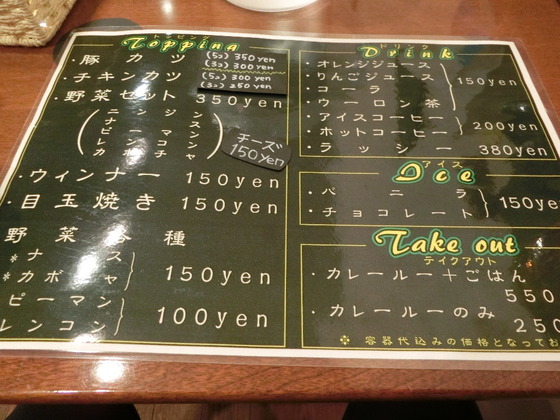 トッピング
Topping
・豚カツ (5コ) 350yen
(3コ) 300yen
・チキンカツ (5コ) 300yen
(3コ) 250yen
・野菜セット 350yen
ニンジン
ナス
ピーマン
レンコン
カボチャ
チーズ
150yen
・ウィンナー 150yen
・目玉焼き 150yen
野菜各種
*ナス
*カボチャ 150yen
ピーマン
レンコン 100yen
ドリンク
Drink
・オレンジジュース
・りんごジュース
・コーラ
・ウーロン茶 150yen
・アイスコーヒー
・ホットコーヒー 200yen
・ラッシー 380yen
アイス
Ice
・バニラ
・チョコレート 150ye
Take out
テイクアウト
・カレールー+ごはん
550
・カレールーのみ
250
※容器代込みの価格となってお